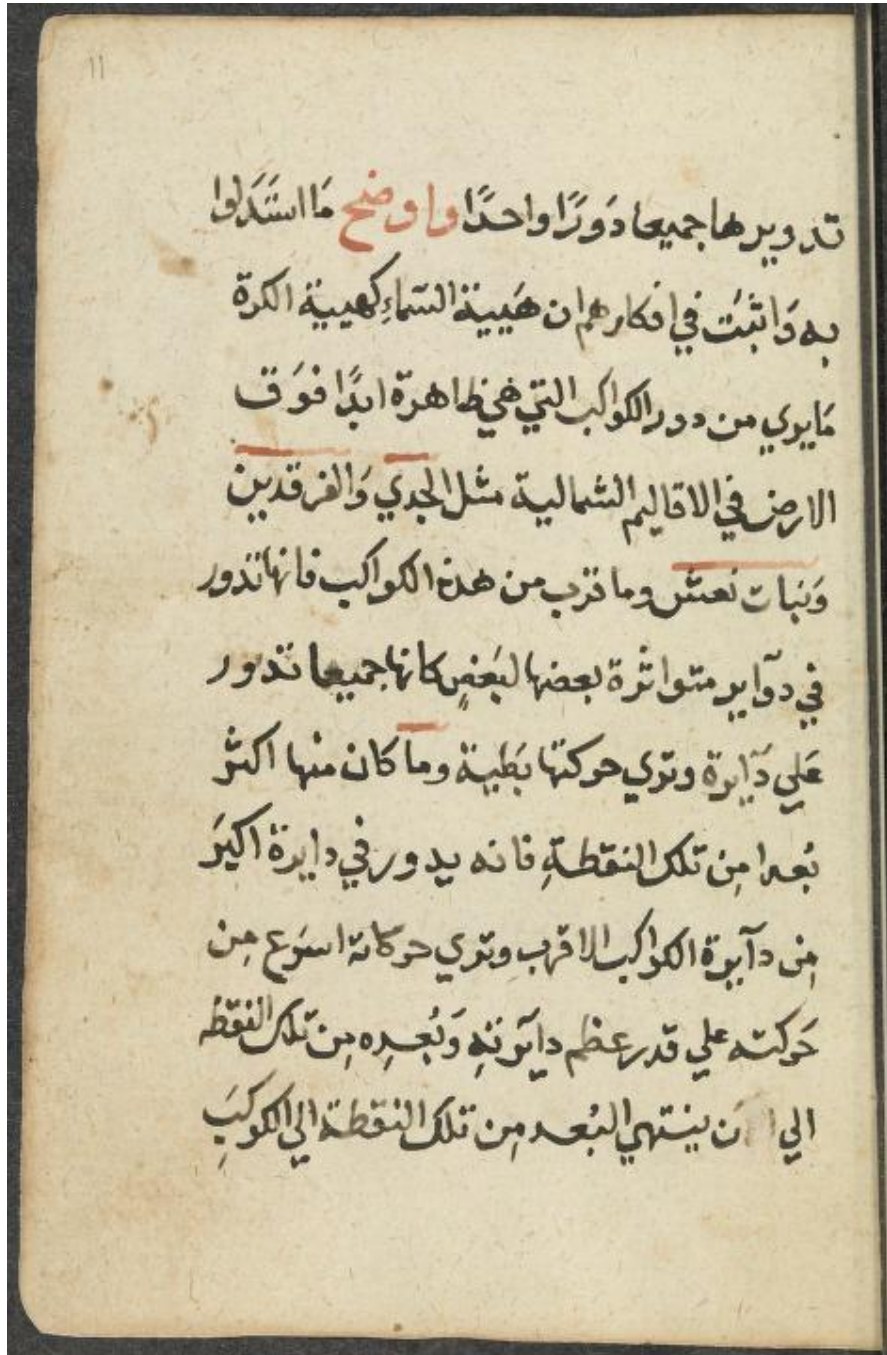 11
تدويرها جميعا دَورًا واحدًا واوضح مَا استَدَلوا
به وَاثبَت في افكارهم ان هَيية السَماءِ كهيية الكرة
مَا يري من دور الكواكب التي هي ظاهرة ابدًا فوَق
الارض في الاقاليم الشمالية مثل الجدي وَالفرقدين
وَبنات نعش وما قرب من هذه الكواكب فانها تدور
في دوآير متواترة بعضها لبَعضٍ كانها جميعا تدور
عَلي دَآيرة وتري حركتها بَطية وما كان منها اكثر
بُعدا مِن تلك النقطةِ فانه يدور في دايرة اكبَر
مِن دآيرة الكواكب الاقرب وتري حركاته اسرَع مِن
حَركته علي قدر عظم دايَرتهِ وَبُعدِه مِن تلك النقطه
الي ان ينتهي البُعد مِن تلك النقطة الي الكوكبَِ